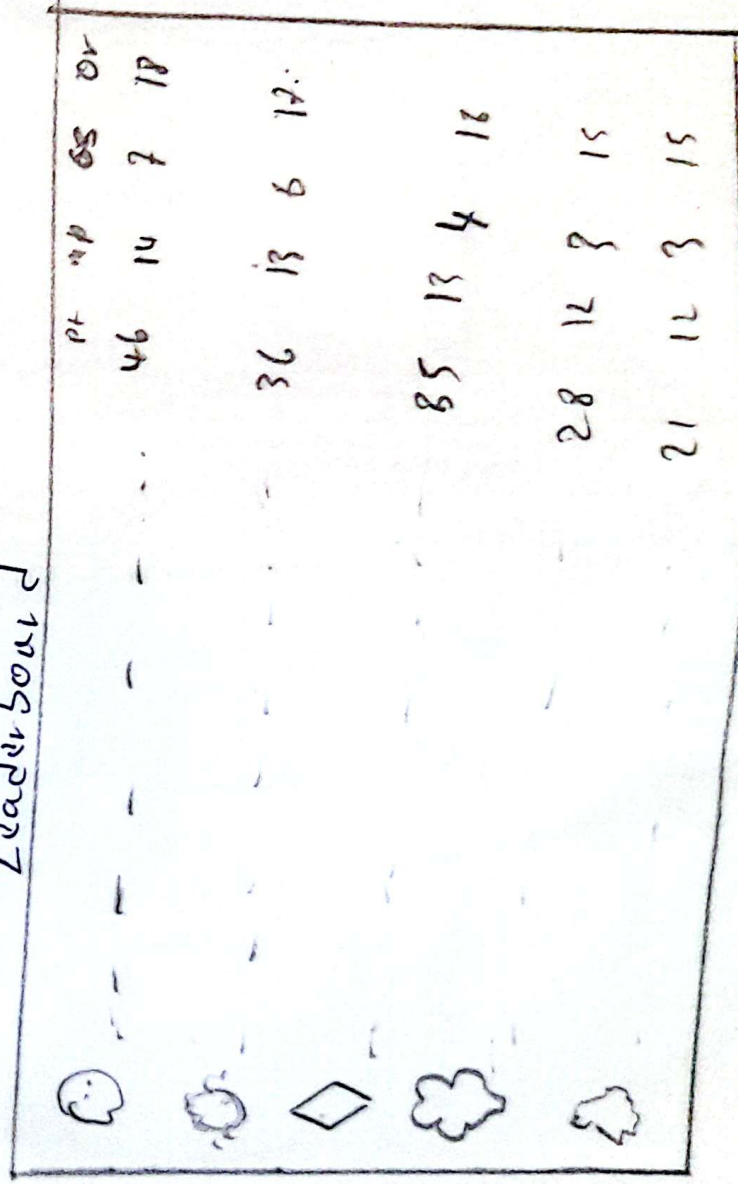 Leaderboard
pt
46 14 7 18
36 13 6 17
13 4 16
28 12 3 15
21 12 3 15